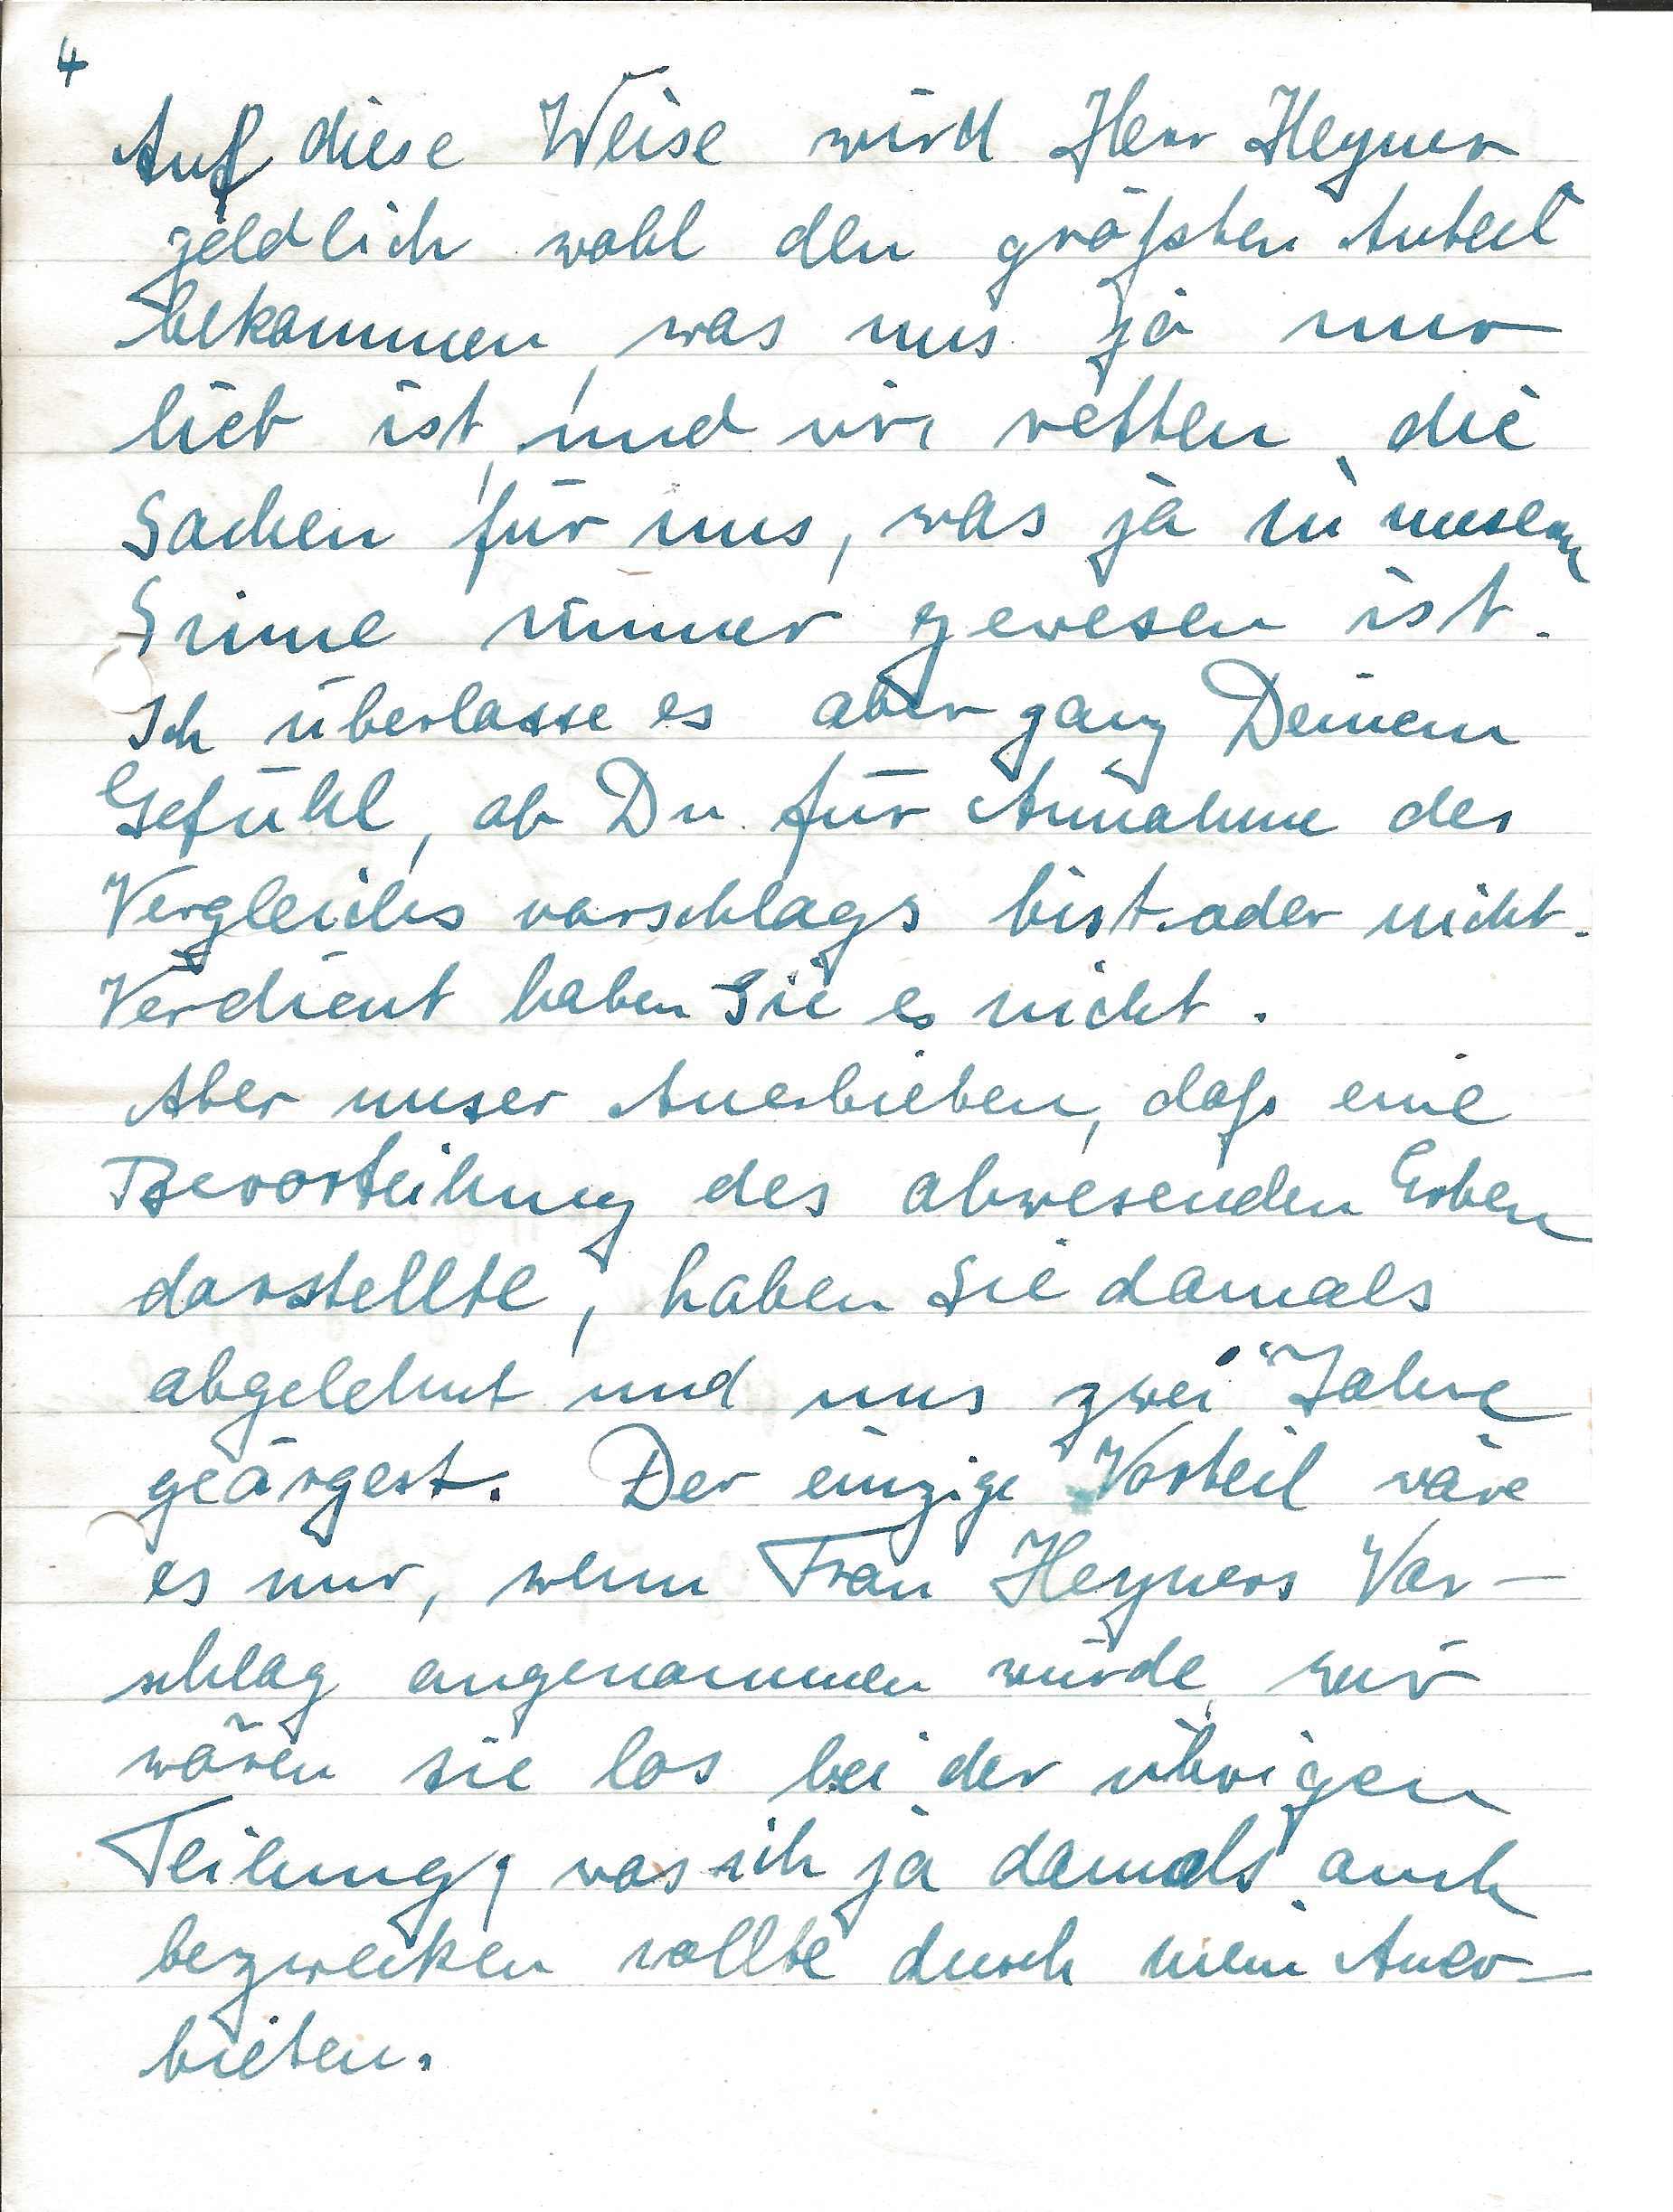 4
Auf diese Weise wird Herr Heyner
geldlich wohl den größten Anteil
bekommen, was uns ja nur
lieb ist, und wir retten die
Sachen für uns, was ja in unserem
Sinne immer gewesen ist.
Ich überlasse es aber ganz Deinem
Gefühl, ob Du für Annahme des
Vergleichsvorschlags bist oder nicht.
Verdient haben Sie es nicht.
Aber unser Anerbieten, daß eine
Bevorteilung des abwesenden Erben
darstellte, haben Sie damals
abgelehnt und uns zwei Jahre
geärgert. Der einzige Vorteil wäre
es nur, wenn Frau Heyners Vor-
schlag angenommen würde, wir
wären sie los bei der übrigen
Teilung, was ich ja damals auch
bezwecken wollte durch mein Aner-
bieten.